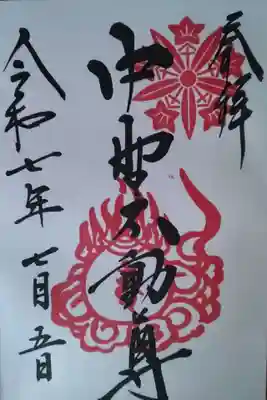 奉拝
中野不動尊
令和七年七月五日